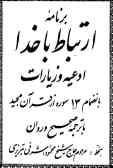 برنامهٔ
ارتباط با خدا
ادعیه و زیارات
بانضمام ۱۳ سوره از قرآن مجید
با ترجمه صحیح و روان